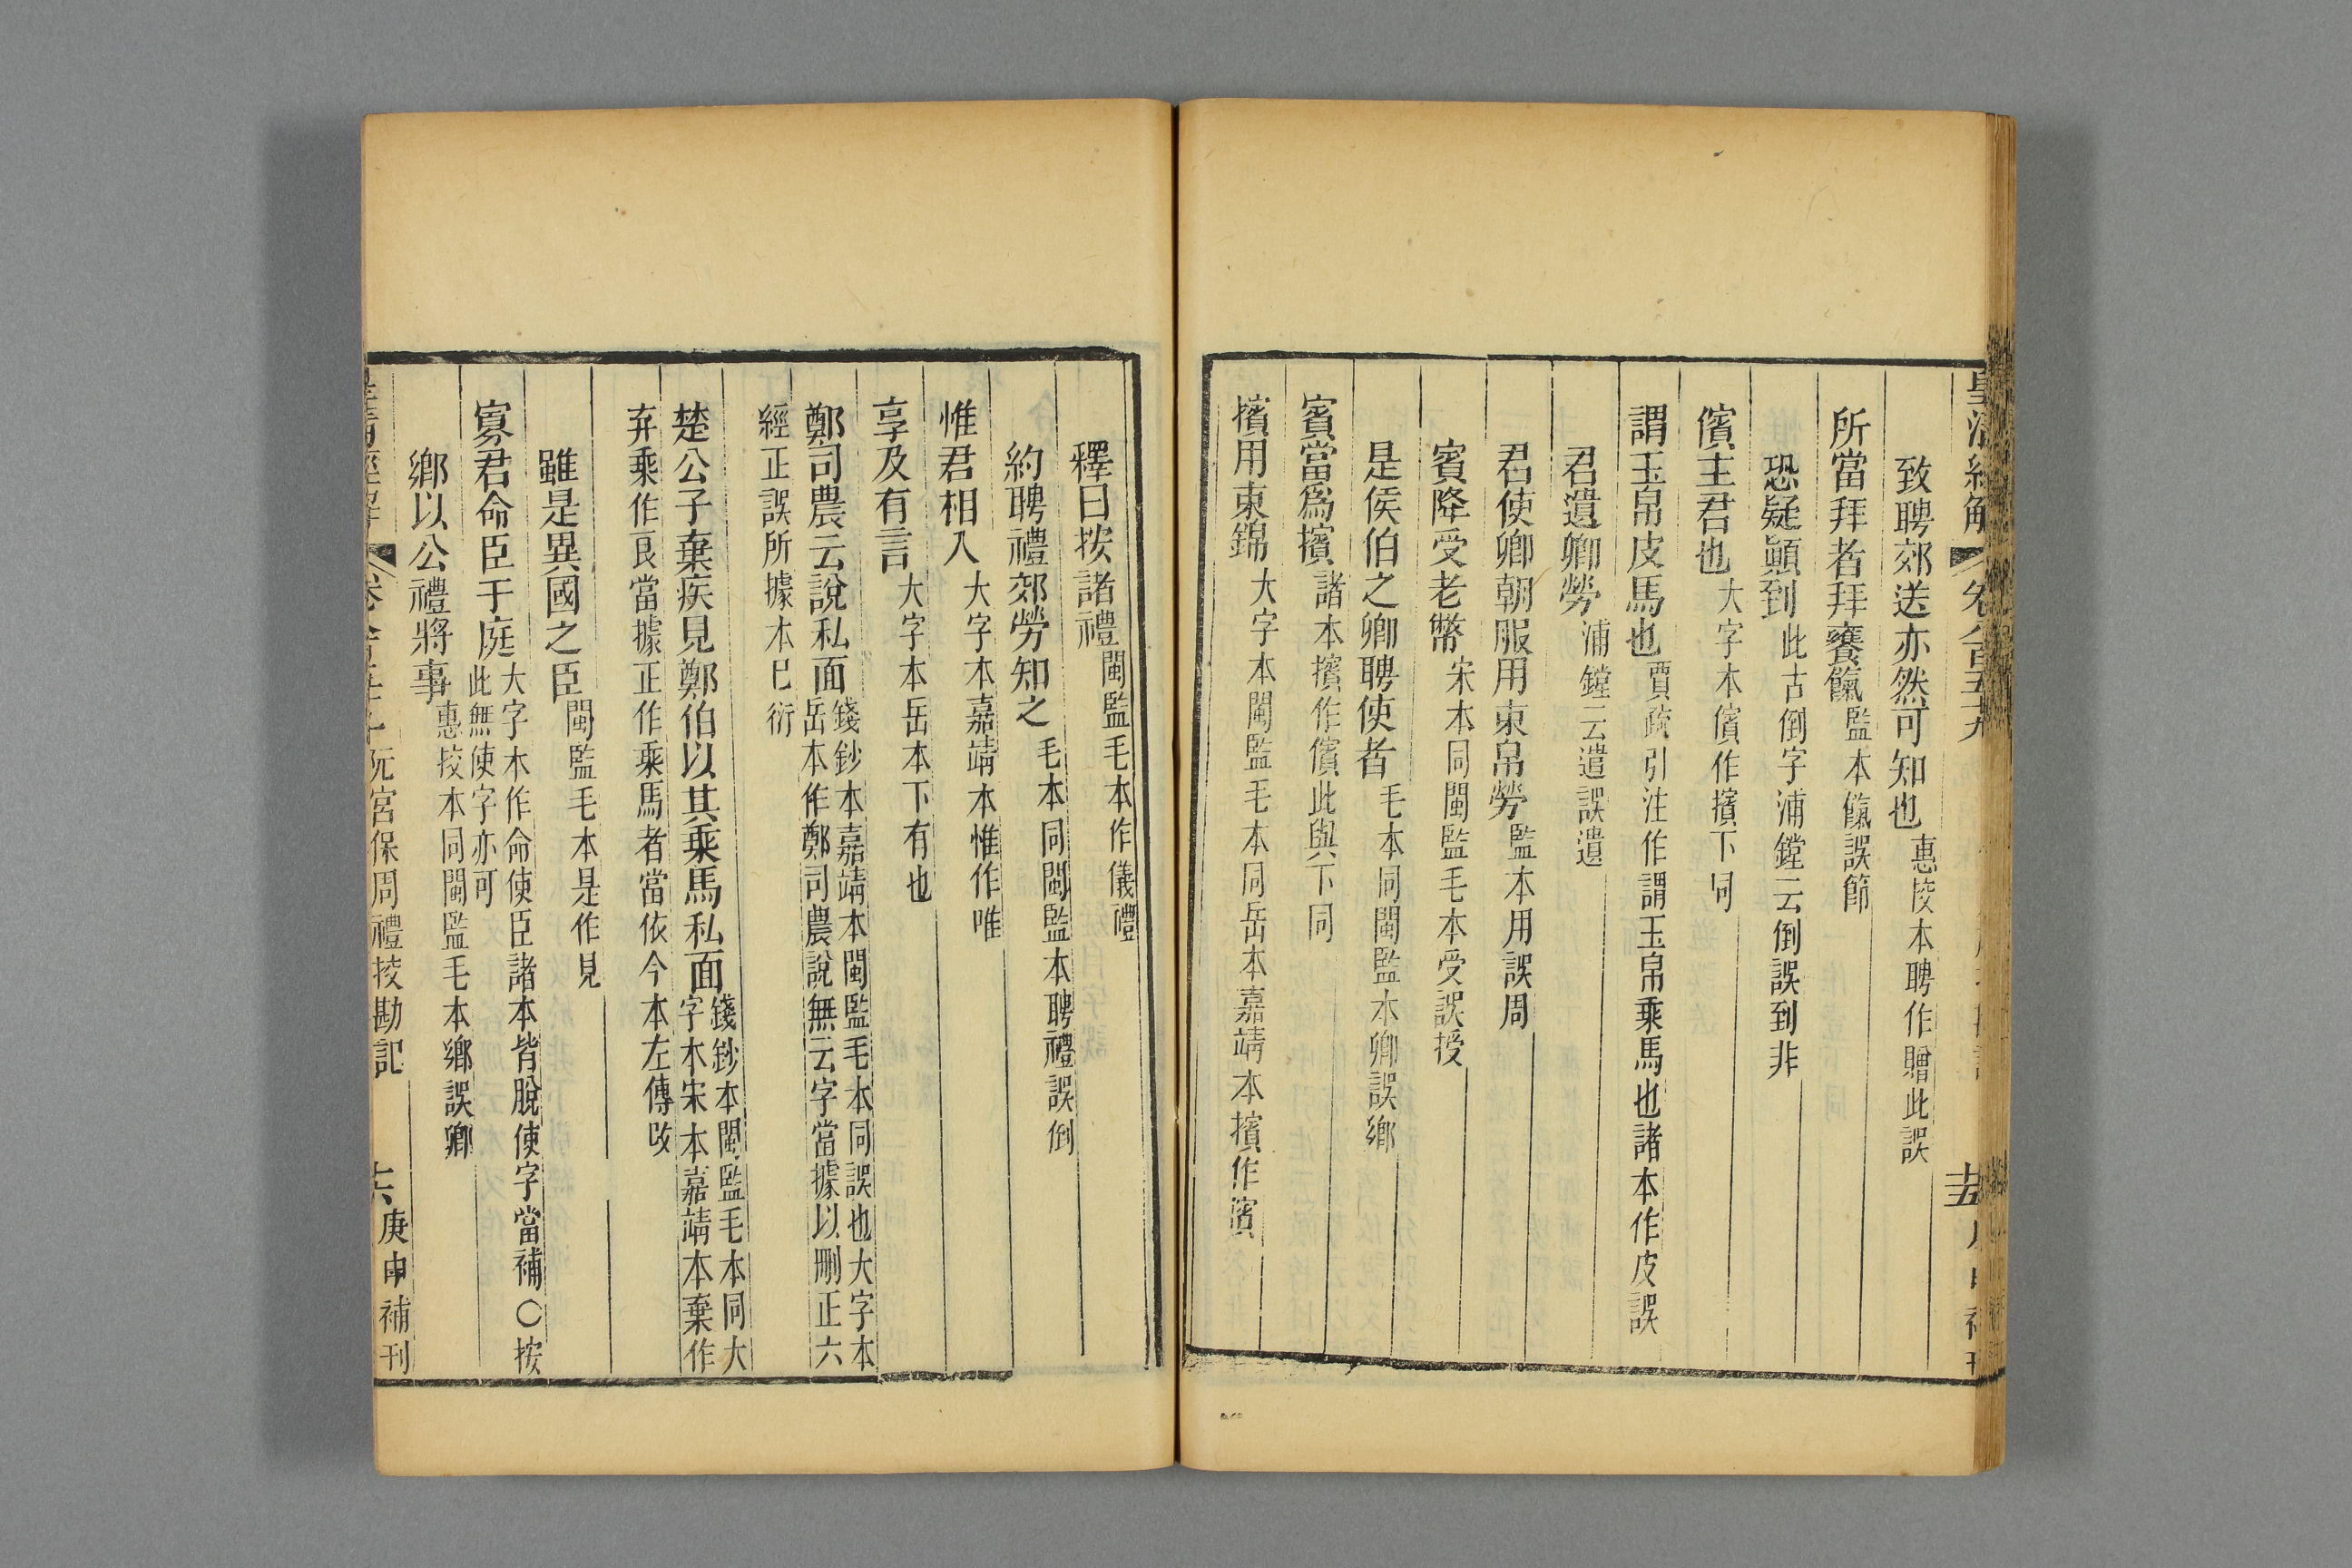 致聘郊送亦然可知也惠挍本聘作贈此誤
所當拜者拜饔餼監本餼誤節
恐疑顚到此古倒字浦鏜云倒誤到非
儐主君也大字本儐作擯下同
謂玉帛皮馬也賈疏引注作謂玉帛乘馬也諸本作皮誤
君遺卿勞浦鏜云遣誤遺
君使卿朝服用束帛勞監本用誤周
賓降受老幣宋本同閩監毛本受誤授
是侯伯之卿聘使者毛本同閩監本卿誤鄉
賓當爲擯諸本擯作儐此與下同
擯用束錦大字本閩監毛本同岳本嘉靖本擯作濱
釋曰按諸禮閩監毛本作儀禮
約聘禮郊勞知之毛本同閩監本聘禮誤倒
惟君相入大字本嘉靖本惟作唯
享及有言大字本岳本下有也
鄭司農云說私面錢鈔本嘉靖本閩監毛本同誤也大字本
岳本作鄭司農說無云字當據以刪正六
經正誤所據本已衍
楚公子棄疾見鄭伯以其乘馬私面錢鈔本閩監毛本同大
字本宋本嘉靖本棄作
弃乘作良當據正作乘馬者當依今本左傳改
雖是異國之臣閩監毛本是作見
寡君命臣于庭大字本作命使臣諸本皆脫使字當補○按
此無使字亦可
鄉以公禮將事惠挍本同閩監毛本鄉誤卿
阮宮保周禮挍勘記 六 庚申補刊